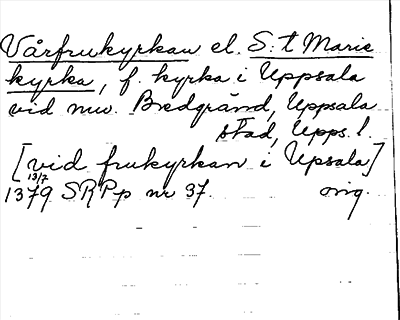 Vårfrukyrkan el. S:t Marie
kyrka, f. kyrka i Uppsala
vid nuv. Bredgränd, Uppsala
stad, Upps. l.
[vid frukyrkan i Upsala]
13/7
1379 SRPp nr 37. orig.